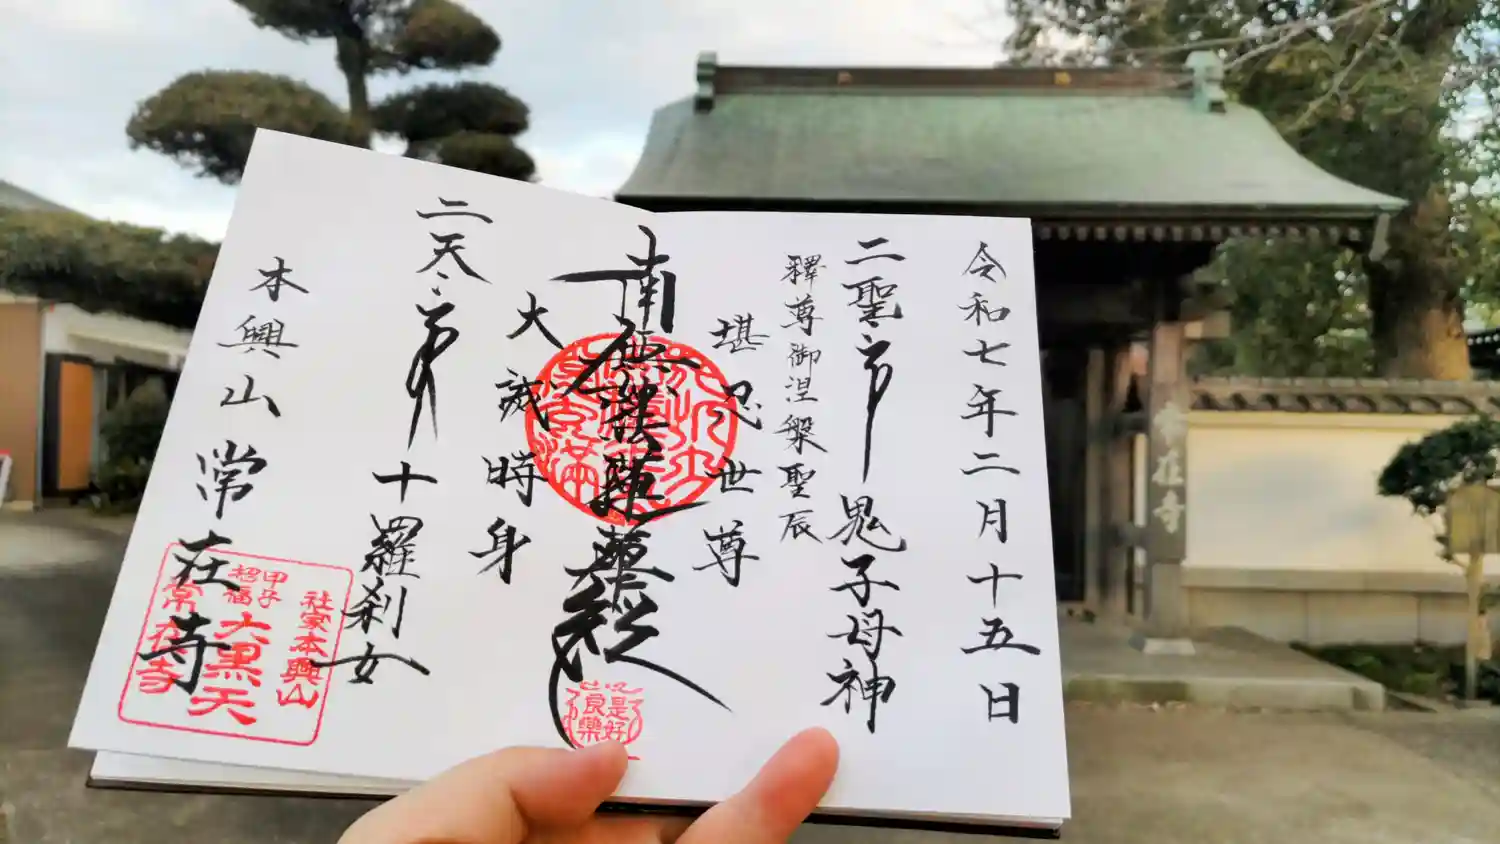 令和七年二月十五日
二聖・
鬼子母神
釋尊御涅槃聖辰
堪忍世尊
南無妙法蓮華経
大誡時身
二天・
十羅刹女
本興山常在寺
社家本興山
甲子
招福
大黒天
常在寺
是好
良藥
常在寺